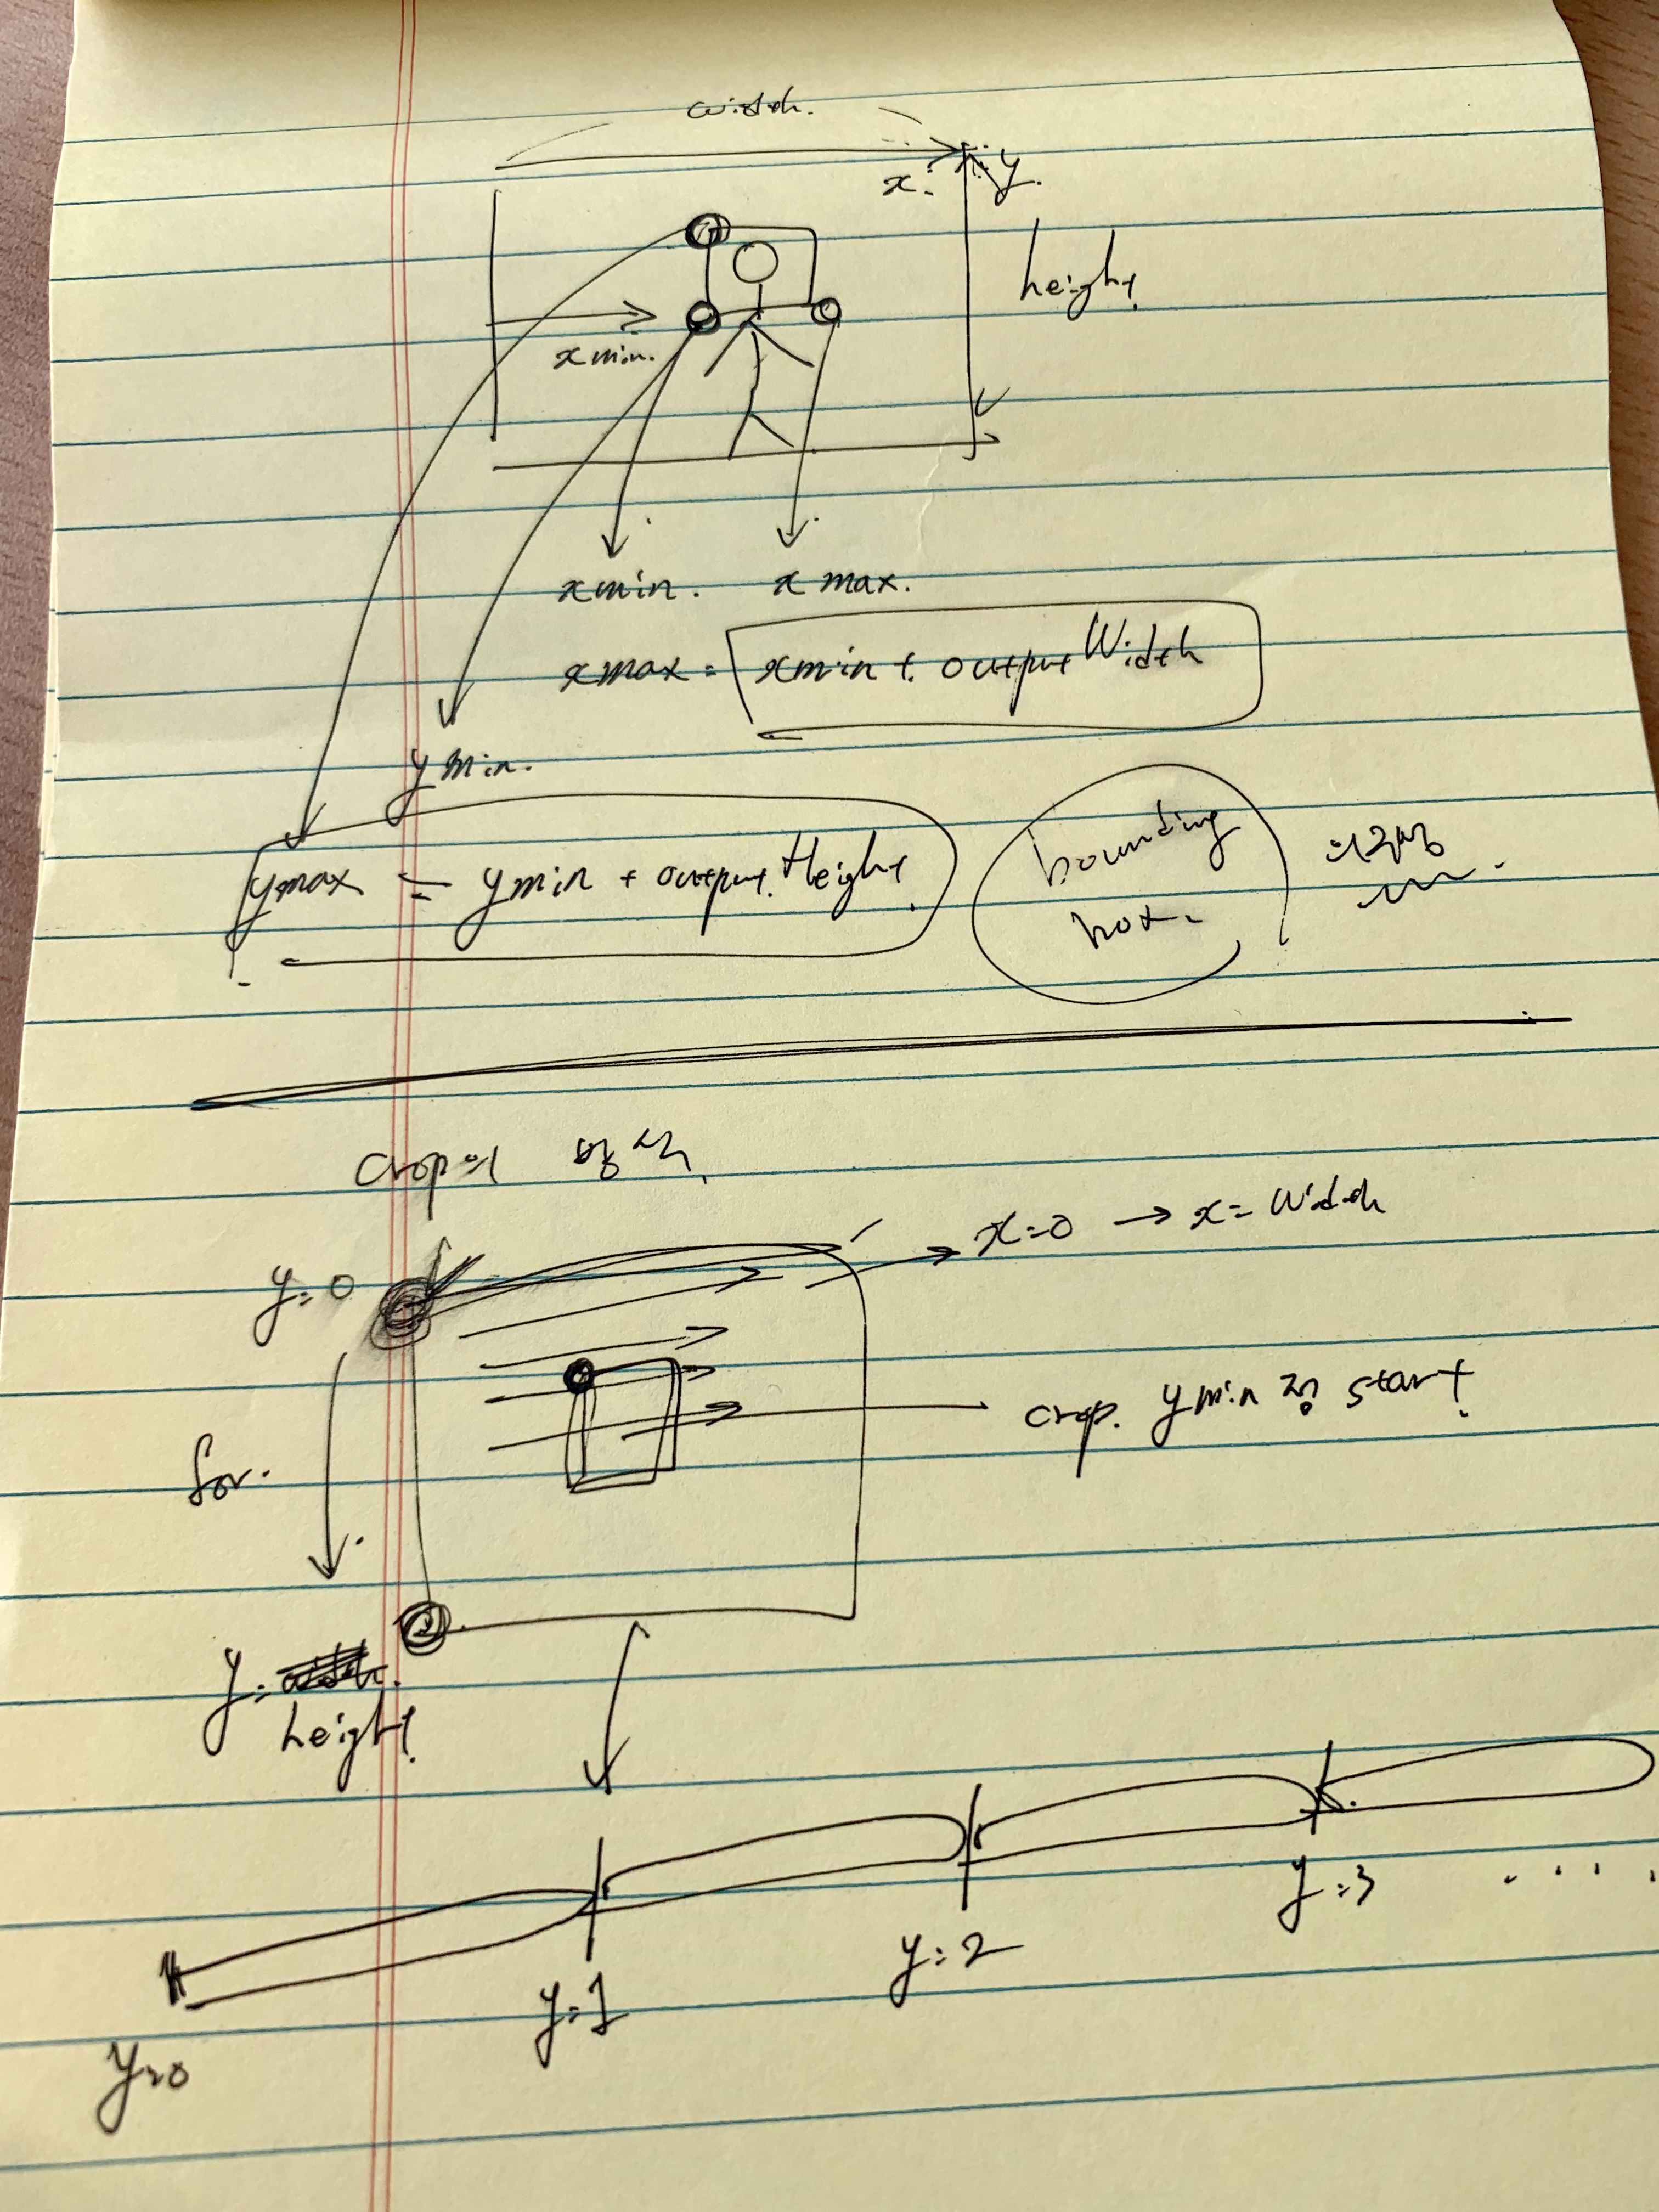 width.
x. y.
height.
xmin.
xmin. xmax.
xmax = xmin + outputWidth
ymin.
ymax = ymin + outputHeight
bounding
box.
crop의 방식
x=0 → x= width
y=0
crop. ymin 점 start.
for.
y=
height.
y=3 ....
y=2
y=1
y=0